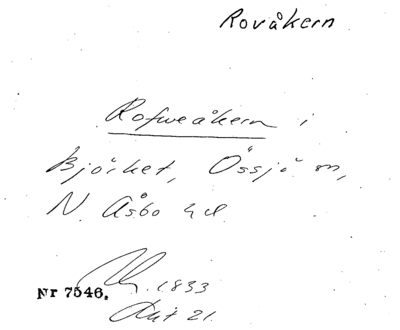 Rovåkern
Rofweåkern i
Björket, Össjö sn,
N. Åsbo hd
1833
Nr 7546.
Akt 21.